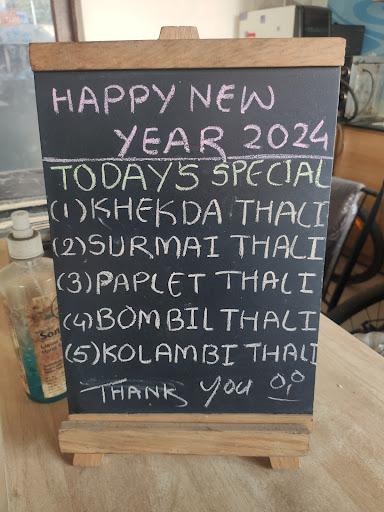 HAPPY NEW
YEAR 2024
TODAY'S SPECIAL
(1) KHEKDA THALI
(2) SURMAI THALI
(3) PAPLET THALI
(4) BOMBIL THALI
(5) KOLAMBI THALI
THANK YOU